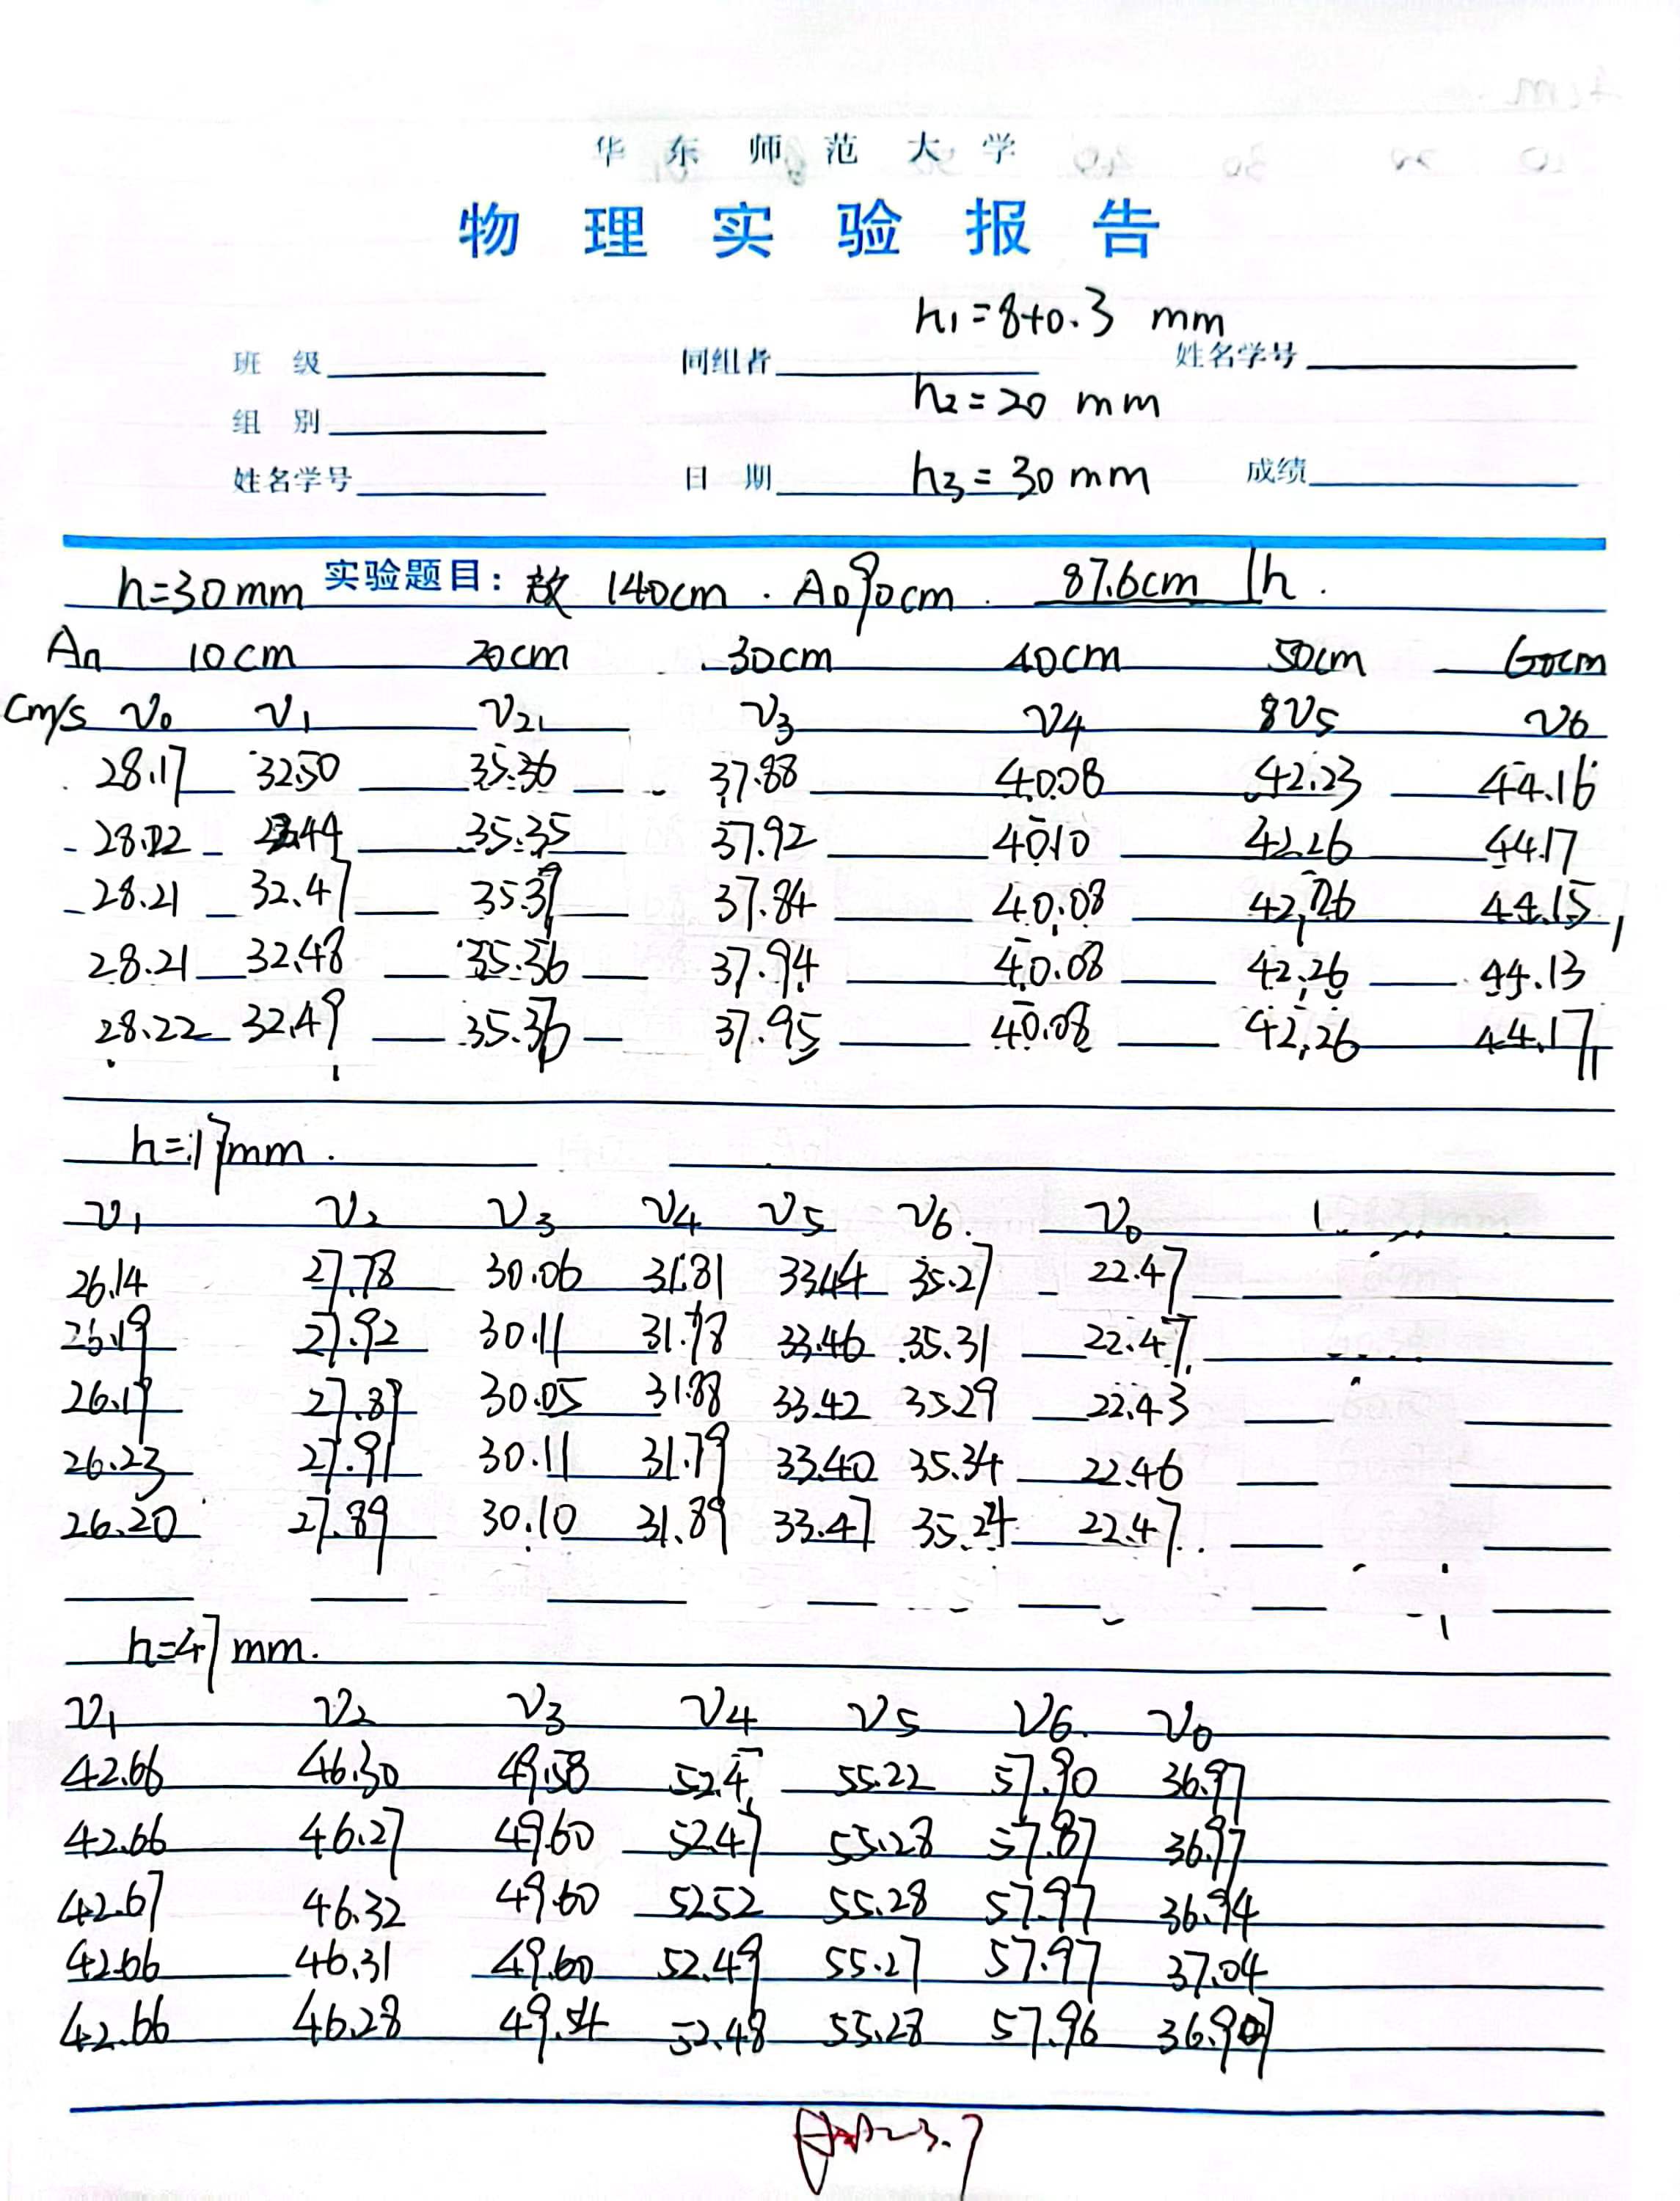 华东师范大学
物理实验报告
h₁=8+0.3 mm
班 级 同组者 姓名学号
h₂=20 mm
组 别
姓名学号 日 期 h₃=30mm 成绩
h=30mm 实验题目: 放 140cm . A₀90cm . 87.6cm h .
An 10cm 20cm 30cm 40cm 50cm 60cm
cm/s v₀ v₁ v₂ v₃ v₄ v₅ v₆
28.17 32.50 35.36 37.88 40.08 42.23 44.16
28.22 32.44 35.35 37.92 40.10 42.26 44.17
28.21 32.47 35.37 37.84 40.08 42.26 44.15
28.21 32.48 35.36 37.94 40.08 42.26 44.13
28.22 32.49 35.36 37.95 40.08 42.26 44.17
h=17mm.
v₁ v₂ v₃ v₄ v₅ v₆. v₀
26.14 27.78 30.06 31.81 33.44 35.27 22.47
26.19 27.92 30.11 31.78 33.46 35.31 22.47
26.19 27.89 30.05 31.88 33.42 35.29 22.43
26.23 27.91 30.11 31.79 33.40 35.34 22.46
26.20 27.89 30.10 31.89 33.47 35.24 22.47
h=47mm.
v₁ v₂ v₃ v₄ v₅ v₆. v₀
42.66 46.30 49.58 52.4 55.22 57.90 36.97
42.66 46.27 49.60 52.47 55.28 57.87 36.97
42.67 46.32 49.60 52.52 55.28 57.97 36.94
42.66 46.31 49.60 52.49 55.27 57.97 37.04
42.66 46.28 49.54 52.48 55.28 57.96